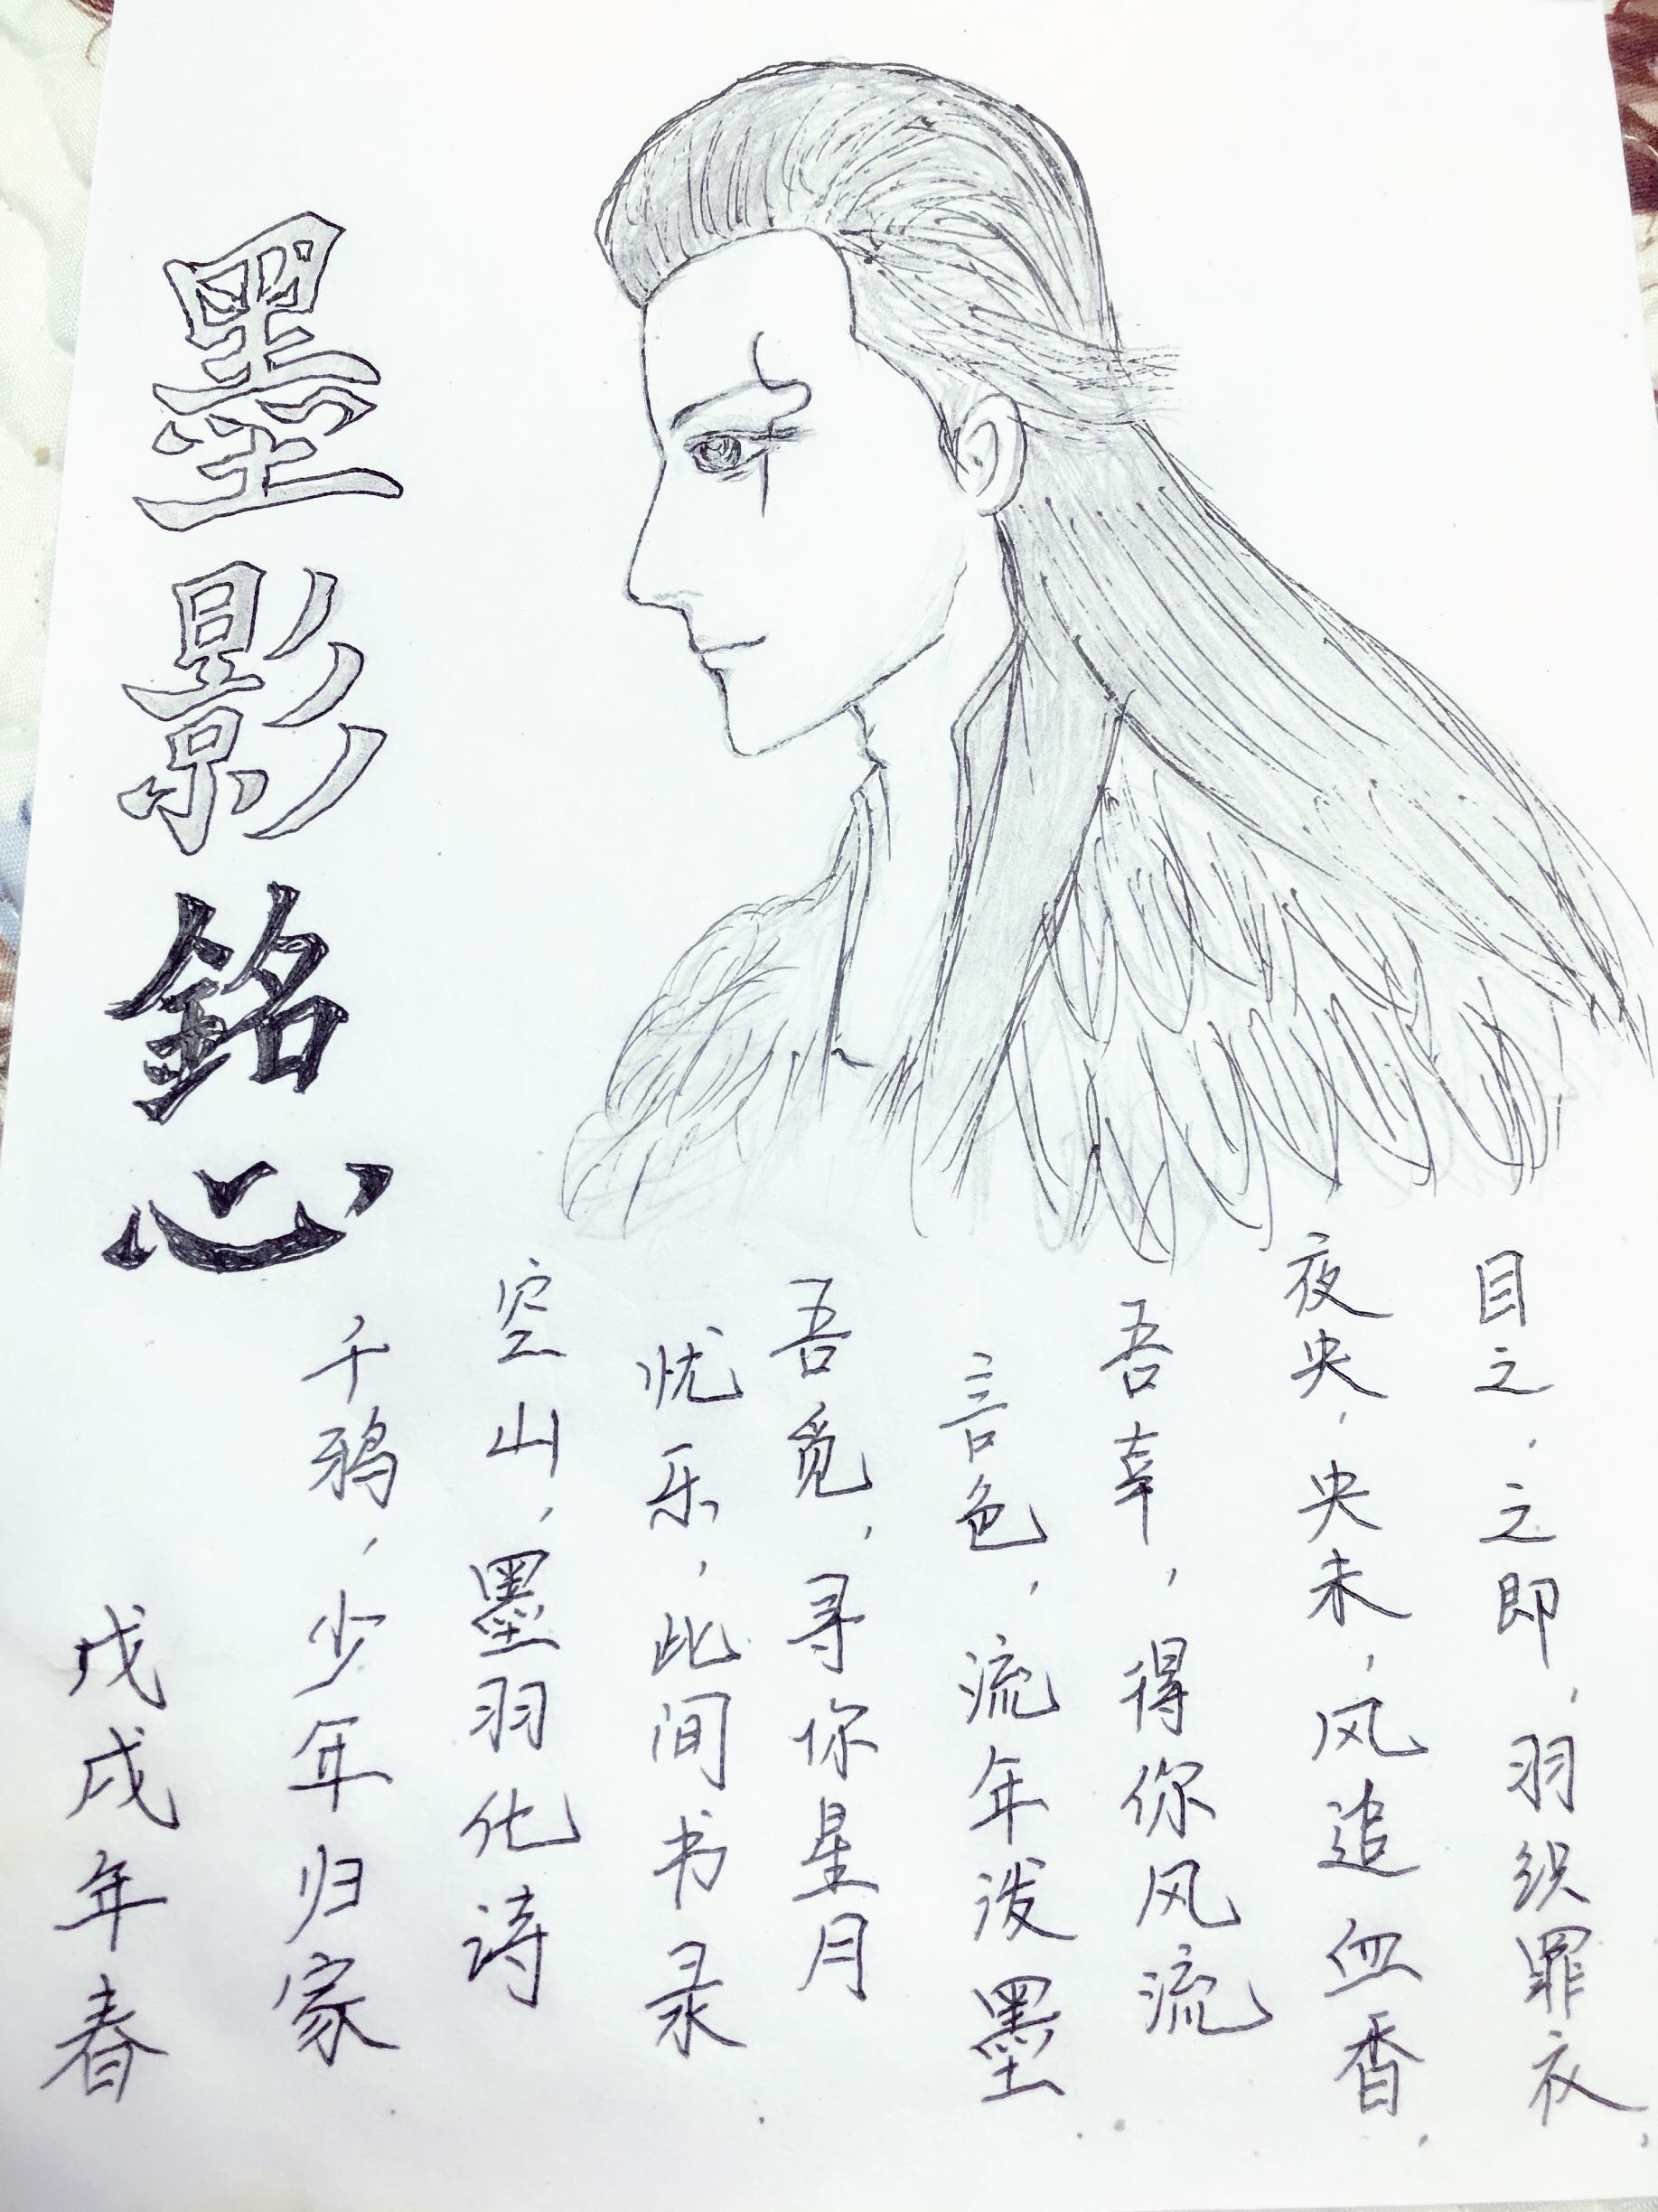 墨影銘心
目之,之即,羽织罪衣,
夜央,央未,风追血香.
吾幸,得你风流
言色,流年泼墨.
吾觅,寻你星月
忧乐,此间书录
空山,墨羽化诗
千鸦,少年归家
戊戌年春